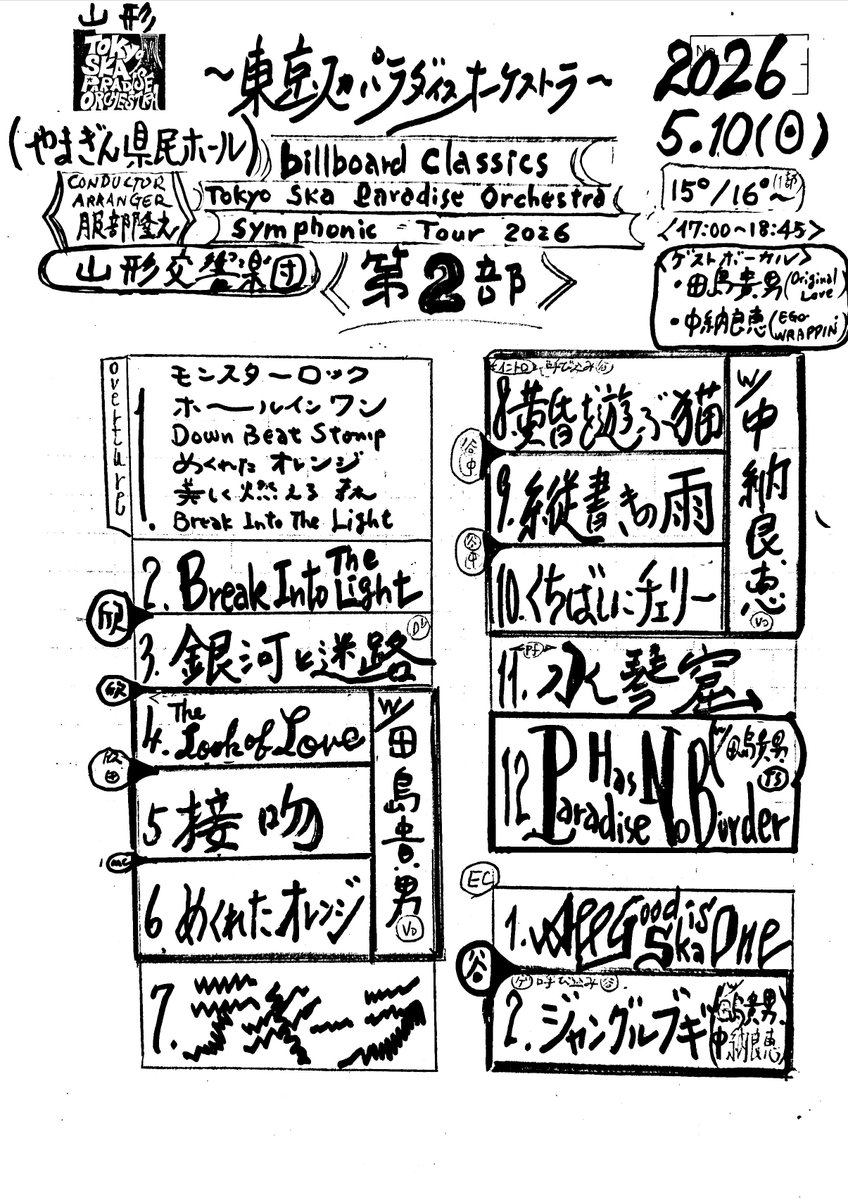 山形
TOKYO
SKA
PARADISE
ORCHESTRA
～東京スカパラダイスオーケストラ～
No.
2026
5.10(日)
(やまぎん県民ホール)
billboard classics
Tokyo Ska Paradise Orchestra
Symphonic Tour 2026
CONDUCTOR
ARRANGER
服部隆之
15⁰/16⁰～(1部)
<17:00~18:45>
山形交響楽団
《第2部》
<ゲストボーカル>
・田島貴男(Original Love)
・中納良恵(EGO WRAPPIN)
overture
1.
モンスターロック
ホールインワン
Down Beat Stomp
めくれたオレンジ
美しく燃える森
Break Into The Light
2. Break Into The Light
欣
3. 銀河と迷路
欣
4. The Look of Love
5 接吻
mc
6. めくれたオレンジ
w/田島貴男
Vo
7.
イントロ 呼び込み 谷
8. 黄昏を遊ぶ猫
谷中
9. 縦書きの雨
谷中
10. くちばしにチェリー
w/中納良恵
Vo
11. 水琴窟
12. Paradise Has No Border
(w/田島貴男
EC
1. All Good Ska is One
谷
呼び込み 谷
2. ジャングルブギ
(w/田島貴男、
中納良恵)